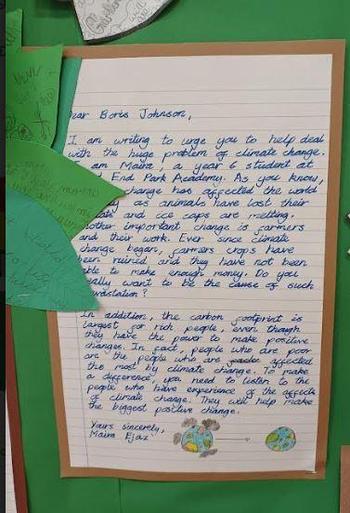 ear Boris Johnson,
I am writing to urge you to help deal
with the huge problem of climate change.
am Maira, a year 6 student at
End Park Academy. As you know,
change has affected the world
as animals have lost their
and ice caps are melting.
other important change is farmers
and their work. Ever since climate
change began, farmers crops have
been ruined and they have not been
ble to make enough money. Do you
ally want to be the cause of such
vastation?
In addition, the carbon footprint is
largest for rich people, even though
they have the power to make positive
changes. In fact, people who are poor
are the people who are affected
the most by climate change. To make
a difference, you need to listen to the
people who have experience of the affects
of climate change. They will help make
the biggest positive change.
Yours sincerely,
Maira Ejaz